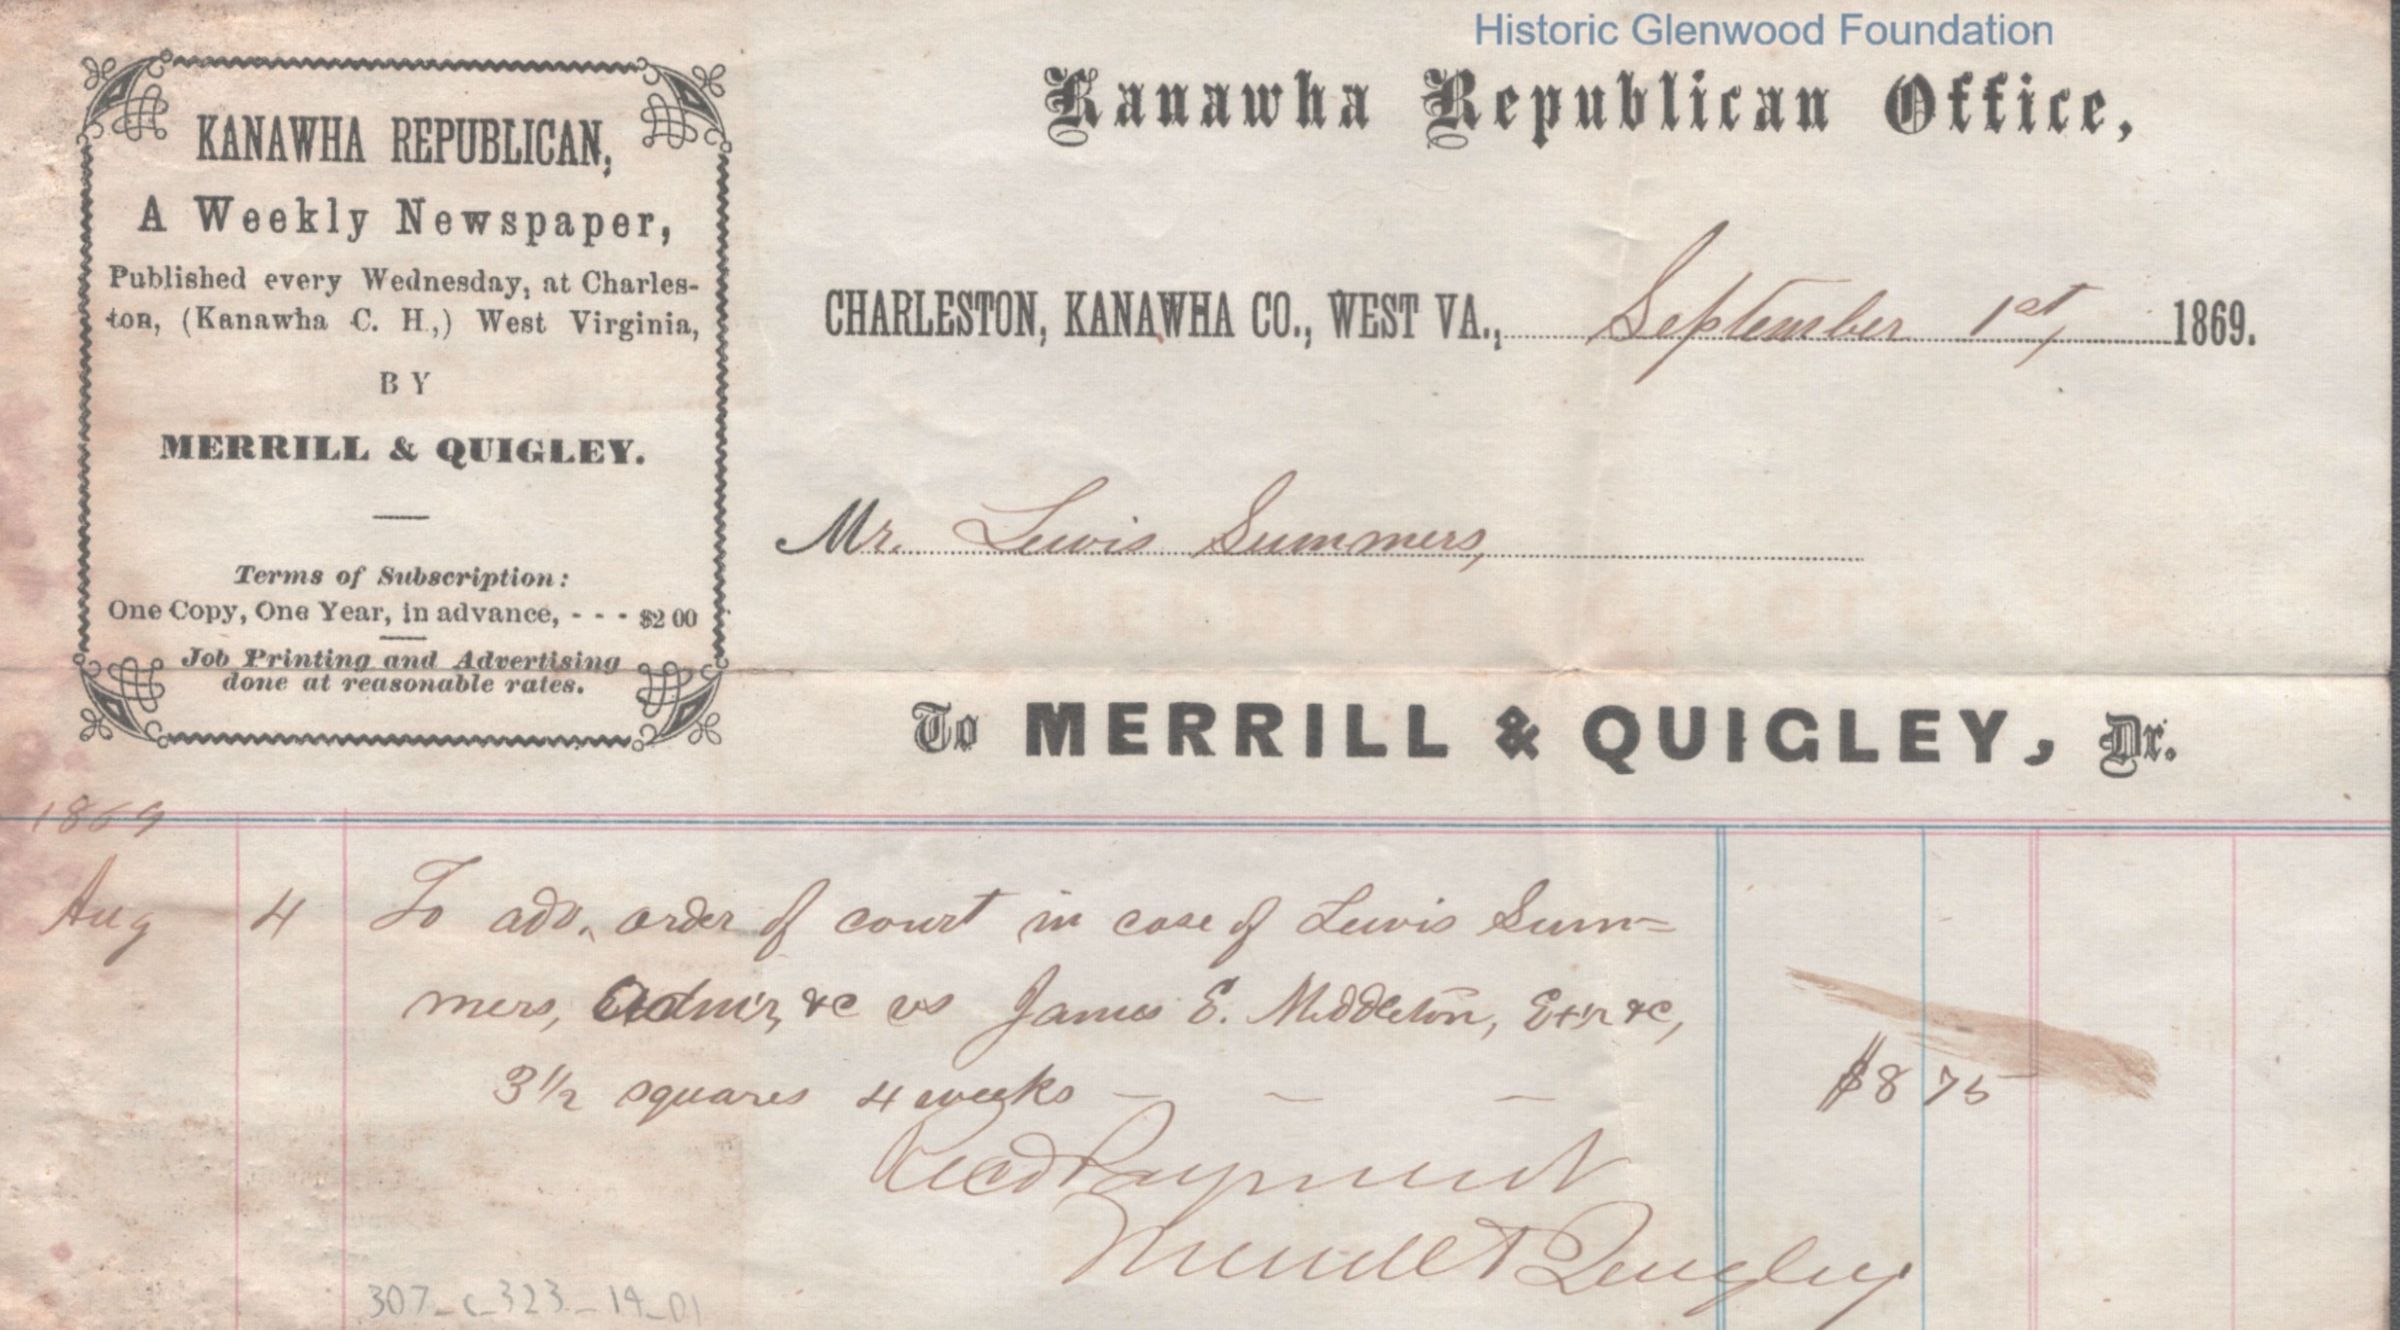 Historic Glenwood Foundation
KANAWHA REPUBLICAN,
A Weekly Newspaper,
Published every Wednesday, at Charles-
ton, (Kanawha C. H.,) West Virginia,
BY
MERRILL & QUIGLEY.
Terms of Subscription:
One Copy, One Year, in advance, - - - $2 00
Job Printing and Advertising
done at reasonable rates.
Kanawha Republican Office,
CHARLESTON, KANAWHA CO., WEST VA., September 1st, 1869.
Mr. Lewis Summers,
To MERRILL & QUIGLEY, Dr.
1869
Aug 4 To adv. order of court in case of Lewis Sum=
mers, Adm'r, &c vs James E. Middleton, Ex'r &c,
3 1/2 squares 4 weeks — — — $8 75
Recd Payment
Merrill & Quigley
307_c_323_14_01